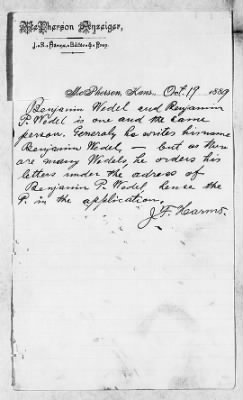 McPherson Anzeiger,
J. F. Harms, Editor & Prop.
McPherson, Kans., Oct. 19 1889
Benjamin Wedel and Benjamin
P. Wedel is one and the same
person. Generaly he writes his name
Benjamin Wedel, — but as there
are many Wedels, he orders his
letters under the adress of
Benjamin P. Wedel, hence the
P. in the application.
J. F. Harms.